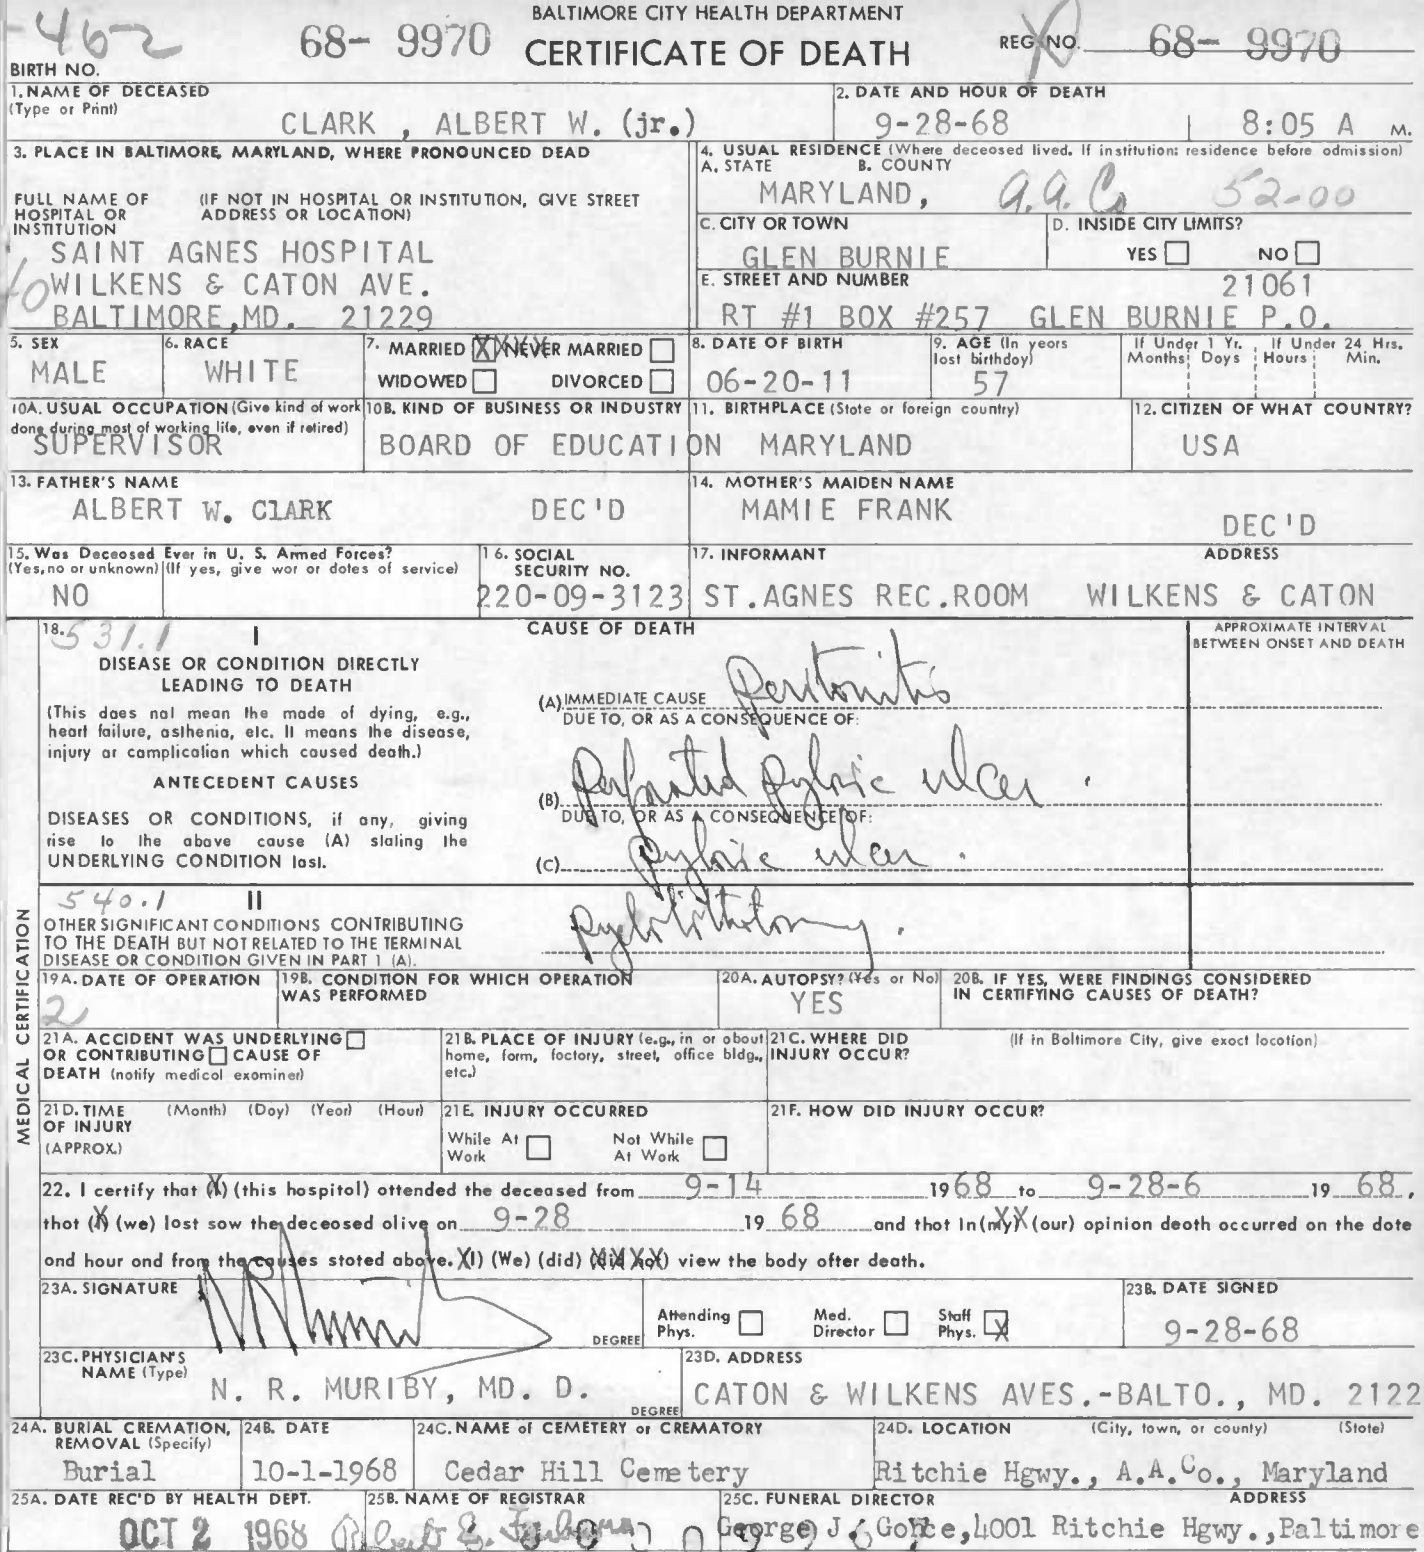 BALTIMORE CITY HEALTH DEPARTMENT
-462 68- 9970 CERTIFICATE OF DEATH REG. NO. 68- 9970
BIRTH NO.
1. NAME OF DECEASED
(Type or Print)
CLARK , ALBERT W. (jr.)
2. DATE AND HOUR OF DEATH
9-28-68 8:05 A M.
3. PLACE IN BALTIMORE, MARYLAND, WHERE PRONOUNCED DEAD
FULL NAME OF HOSPITAL OR INSTITUTION
(IF NOT IN HOSPITAL OR INSTITUTION, GIVE STREET ADDRESS OR LOCATION)
SAINT AGNES HOSPITAL
WILKENS & CATON AVE.
BALTIMORE,MD. 21229
4. USUAL RESIDENCE (Where deceosed lived. If institution: residence before admission)
A. STATE B. COUNTY
MARYLAND, A.A. Co 52-00
C. CITY OR TOWN
GLEN BURNIE
D. INSIDE CITY LIMITS?
YES NO
E. STREET AND NUMBER
21061
RT #1 BOX #257 GLEN BURNIE P.O.
5. SEX
MALE
6. RACE
WHITE
7. MARRIED X NEVER MARRIED
WIDOWED DIVORCED
8. DATE OF BIRTH
06-20-11
9. AGE (In years lost birthdoy)
57
If Under 1 Yr. If Under 24 Hrs.
Months Doys Hours Min.
10A. USUAL OCCUPATION (Give kind of work
done during most of working life, even if retired)
SUPERVISOR
10B. KIND OF BUSINESS OR INDUSTRY
BOARD OF EDUCATION
11. BIRTHPLACE (Stote or foreign country)
MARYLAND
12. CITIZEN OF WHAT COUNTRY?
USA
13. FATHER'S NAME
ALBERT W. ClARK DEC'D
14. MOTHER'S MAIDEN NAME
MAMIE FRANK DEC'D
15. Was Deceosed Ever in U. S. Armed Forces?
(Yes, no or unknown) (If yes, give wor or dotes of service)
NO
16. SOCIAL SECURITY NO.
220-09-3123
17. INFORMANT ADDRESS
ST.AGNES REC.ROOM WILKENS & CATON
18. 531.1 I CAUSE OF DEATH
APPROXIMATE INTERVAL
BETWEEN ONSET AND DEATH
DISEASE OR CONDITION DIRECTLY
LEADING TO DEATH
(This daes nal mean lhe made of dying, e.g.,
hearl failure, aslhenia, elc. Il means lhe disease,
injury ar camplicalian which caused dealh.)
ANTECEDENT CAUSES
DISEASES OR CONDITIONS, if any, giving
rise lo lhe above cause (A) slaling lhe
UNDERLYING CONDITION lasl.
(A) IMMEDIATE CAUSE Peritonitis
DUE TO, OR AS A CONSEQUENCE OF:
(B) Perforated pyloric ulcer.
DUE TO, OR AS A CONSEQUENCE OF:
(C) pyloric ulcer.
540.1 II
OTHER SIGNIFICANT CONDITIONS CONTRIBUTING
TO THE DEATH BUT NOT RELATED TO THE TERMINAL
DISEASE OR CONDITION GIVEN IN PART 1 (A).
pyelolithotomy.
MEDICAL CERTIFICATION
19A. DATE OF OPERATION
2
19B. CONDITION FOR WHICH OPERATION
WAS PERFORMED
20A. AUTOPSY? (Yes or No)
YES
20B. IF YES, WERE FINDINGS CONSIDERED
IN CERTIFYING CAUSES OF DEATH?
21A. ACCIDENT WAS UNDERLYING
OR CONTRIBUTING CAUSE OF
DEATH (notify medicol examiner)
21B. PLACE OF INJURY (e.g., in or obout
home, form, foctory, street, office bldg.,
etc.)
21C. WHERE DID (If in Boltimore City, give exoct locotion)
INJURY OCCUR?
21D. TIME (Month) (Doy) (Yeor) (Hour)
OF INJURY
(APPROX.)
21E. INJURY OCCURRED
While At Work Not While At Work
21F. HOW DID INJURY OCCUR?
22. I certify that (X) (this hospitol) ottended the deceosed from 9-14 1968 to 9-28-6 19 68,
thot (X) (we) lost sow the deceosed olive on 9-28 19 68 ond thot In(my) (our) opinion deoth occurred on the dote
ond hour ond from the couses stoted obove. XI) (We) (did) (did not) view the body ofter deoth.
23A. SIGNATURE
DEGREE
Attending Phys. Med. Director Stoff Phys. X
23B. DATE SIGNED
9-28-68
23C. PHYSICIAN'S NAME (Type)
N. R. MURIBY, MD. D.
DEGREE
23D. ADDRESS
CATON & WILKENS AVES.-BALTO., MD. 2122
24A. BURIAL CREMATION, REMOVAL (Specify)
Burial
24B. DATE
10-1-1968
24C. NAME of CEMETERY or CREMATORY
Cedar Hill Cemetery
24D. LOCATION (City, town, or county) (Stote)
Ritchie Hgwy., A.A.Co., Maryland
25A. DATE REC'D BY HEALTH DEPT.
OCT 2 1968
25B. NAME OF REGISTRAR
25C. FUNERAL DIRECTOR ADDRESS
George J. Gonce,4001 Ritchie Hgwy.,Baltimore